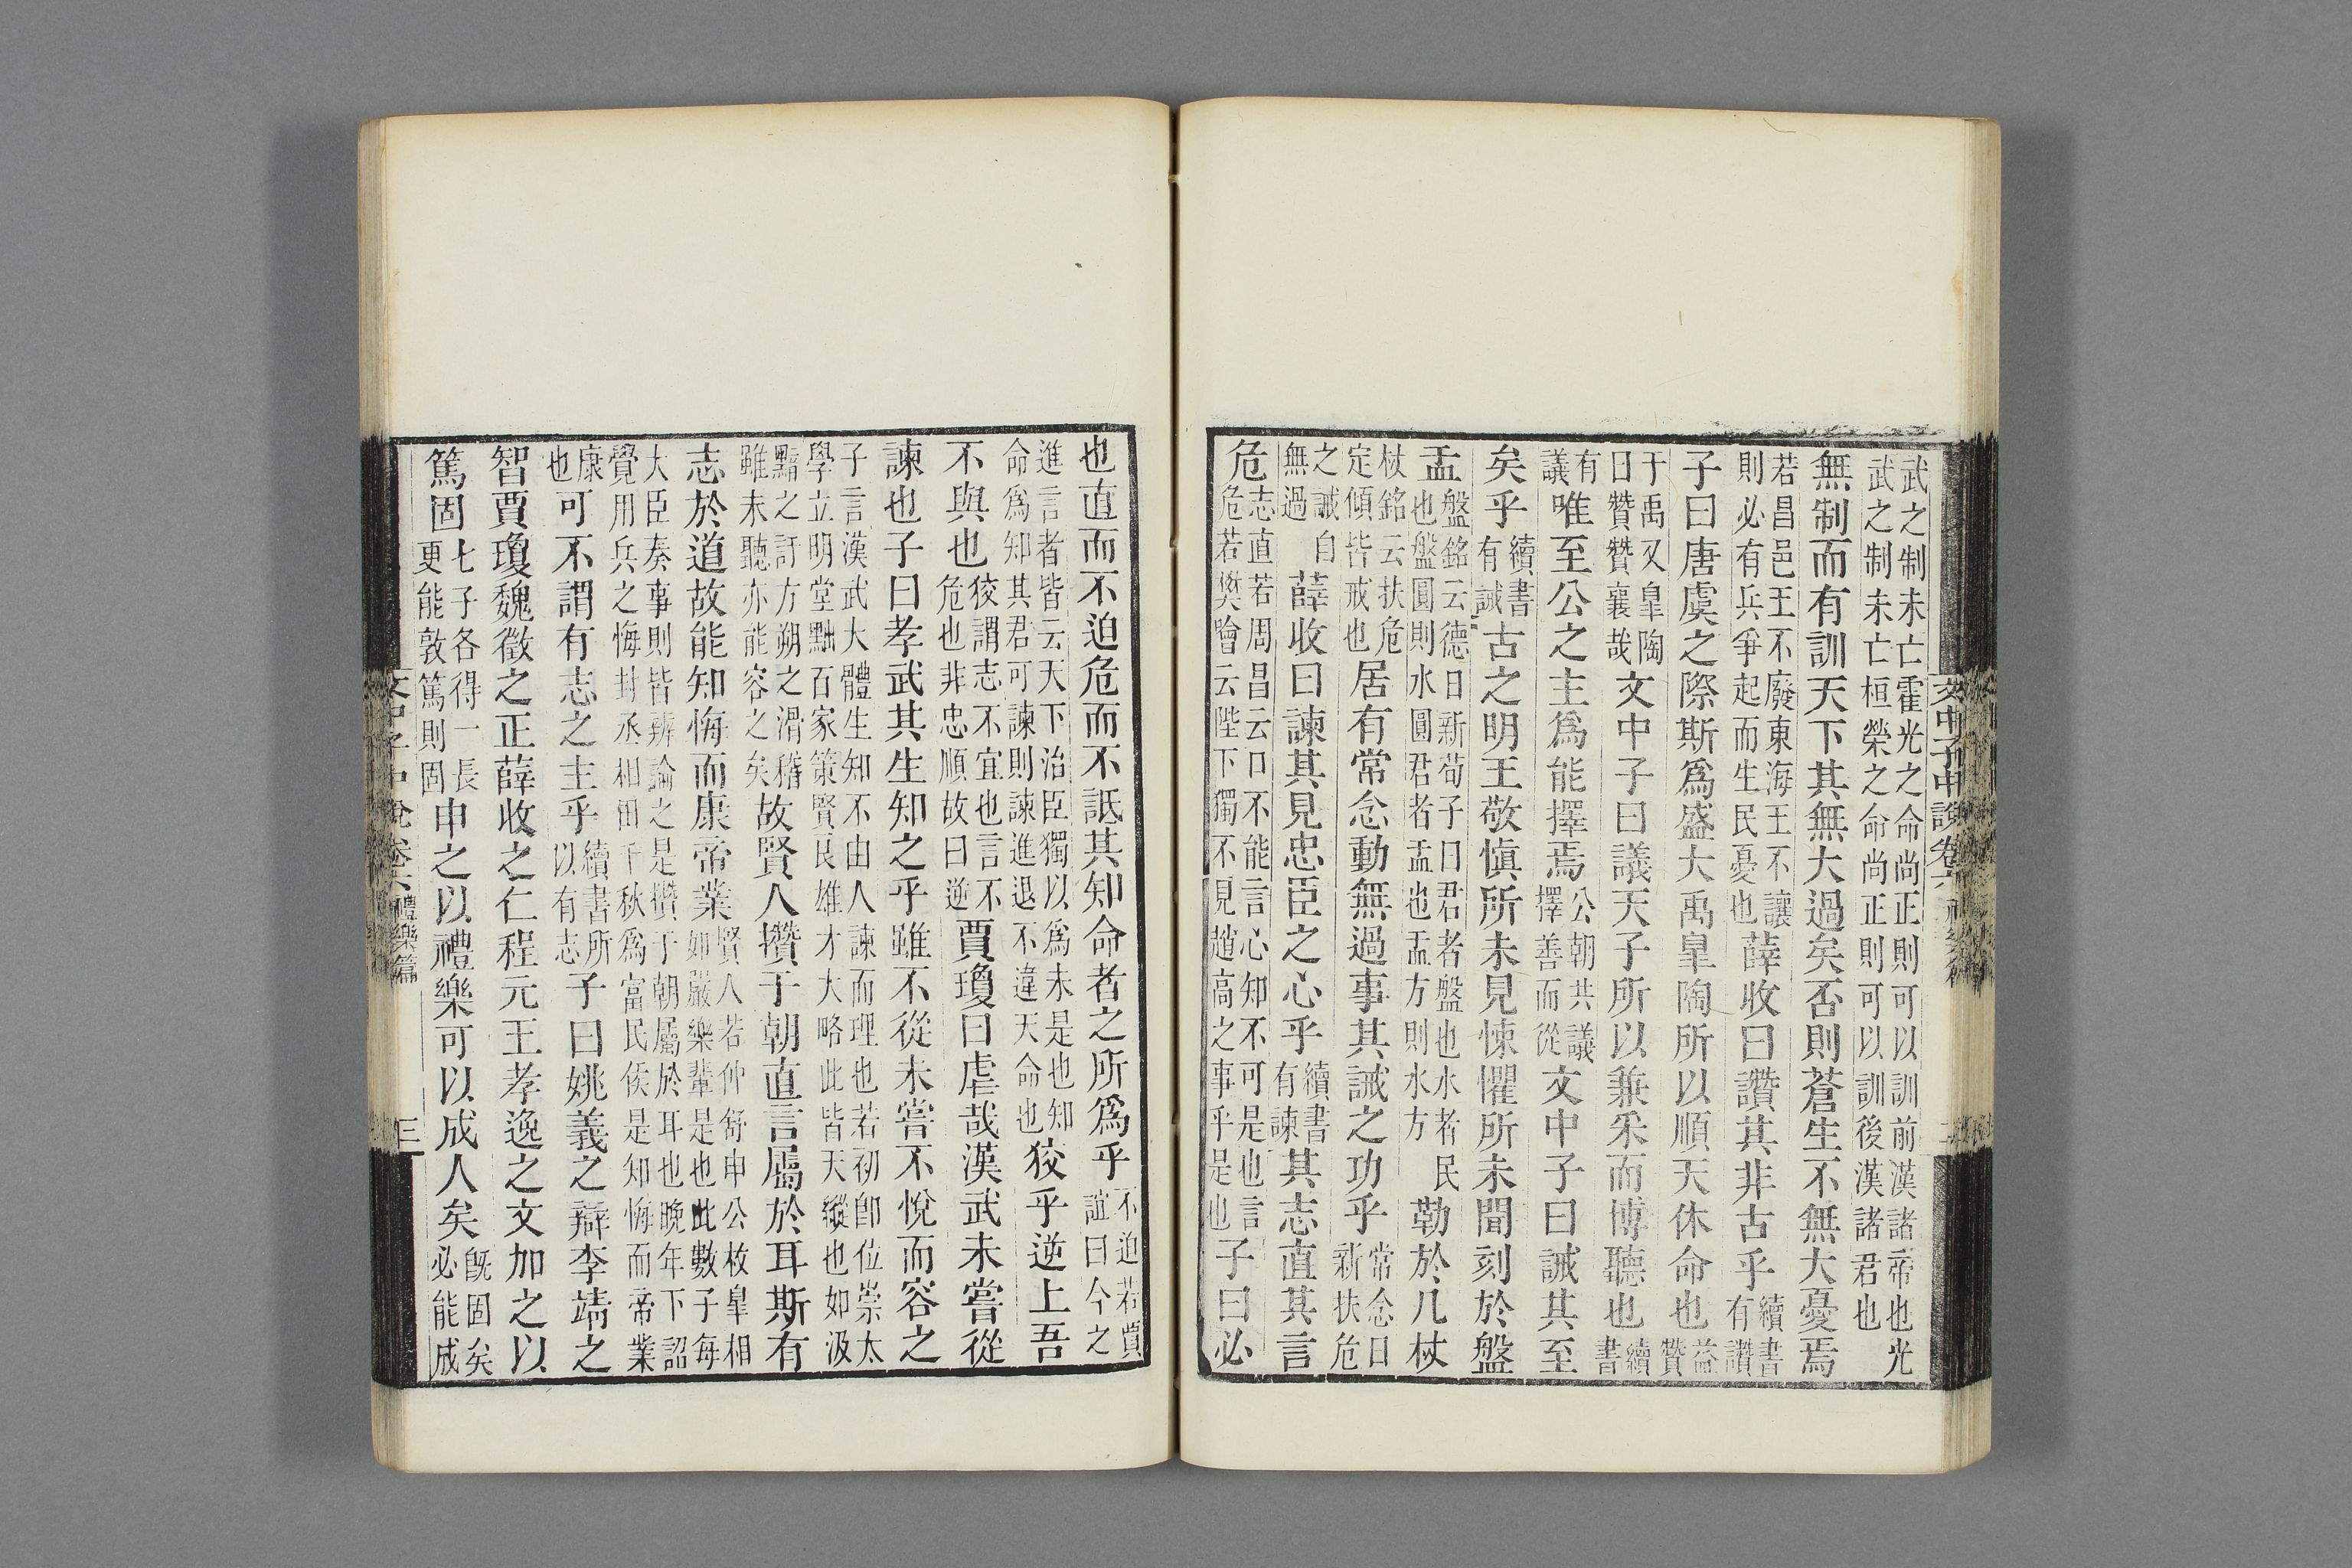 文中子中說卷六
武之制未亡霍光之命尚正則可以訓前漢諸帝也光
武之制未亡桓榮之命尚正則可以訓後漢諸君也
無制而有訓天下其無大過矣否則蒼生不無大憂焉
若昌邑王不廢東海王不讓則必有兵爭起而生民憂也薛收曰讚其非古乎續書有讚
子曰唐虞之際斯爲盛大禹皐陶所以順天休命也益贊
于禹又皐陶曰贊贊襄哉文中子曰議天子所以兼采而博聽也續書
有議唯至公之主爲能擇焉公朝共議擇善而從文中子曰誡其至
矣乎續書有誡古之明王敬愼所未見悚懼所未聞刻於盤
盂盤銘云德日新荀子曰君者盤也水者民也盤圓則水圓君者盂也盂方則水方勒於几杖
杖銘云扶危定傾皆戒也居有常念動無過事其誡之功乎常念日新扶危
之誡自無過薛收曰諫其見忠臣之心乎續書有諫其志直其言
危志直若周昌云口不能言心知不可是也言危若樊噲云陛下獨不見趙高之事乎是也子曰必
也直而不迫危而不詆其知命者之所爲乎不迫若賈誼曰今之
進言者皆云天下治臣獨以爲未是也知命爲知其君可諫則諫進退不違天命也狡乎逆上吾
不與也狡謂志不宜也言不危也非忠順故曰逆賈瓊曰虐哉漢武未嘗從
諫也子曰孝武其生知之乎雖不從未嘗不悅而容之
子言漢武大體生知不由人諫而理也若初卽位崇太
學立明堂黜百家策賢良雄才大略此皆天縱也如汲
黯之訐方朔之滑稽雖未聽亦能容之矣故賢人攢于朝直言屬於耳斯有
志於道故能知悔而康帝業賢人若仲舒申公枚皐相如嚴樂輩是也此數子每
大臣奏事則皆辨論之是攢于朝屬於耳也晚年下詔
覺用兵之悔封丞相田千秋爲富民侯是知悔而帝業
康也可不謂有志之主乎續書所以有志子曰姚義之辯李靖之
智賈瓊魏徵之正薛收之仁程元王孝逸之文加之以
篤固七子各得一長更能敦篤則固申之以禮樂可以成人矣旣固矣必能成
文中子中說卷六禮樂篇 三